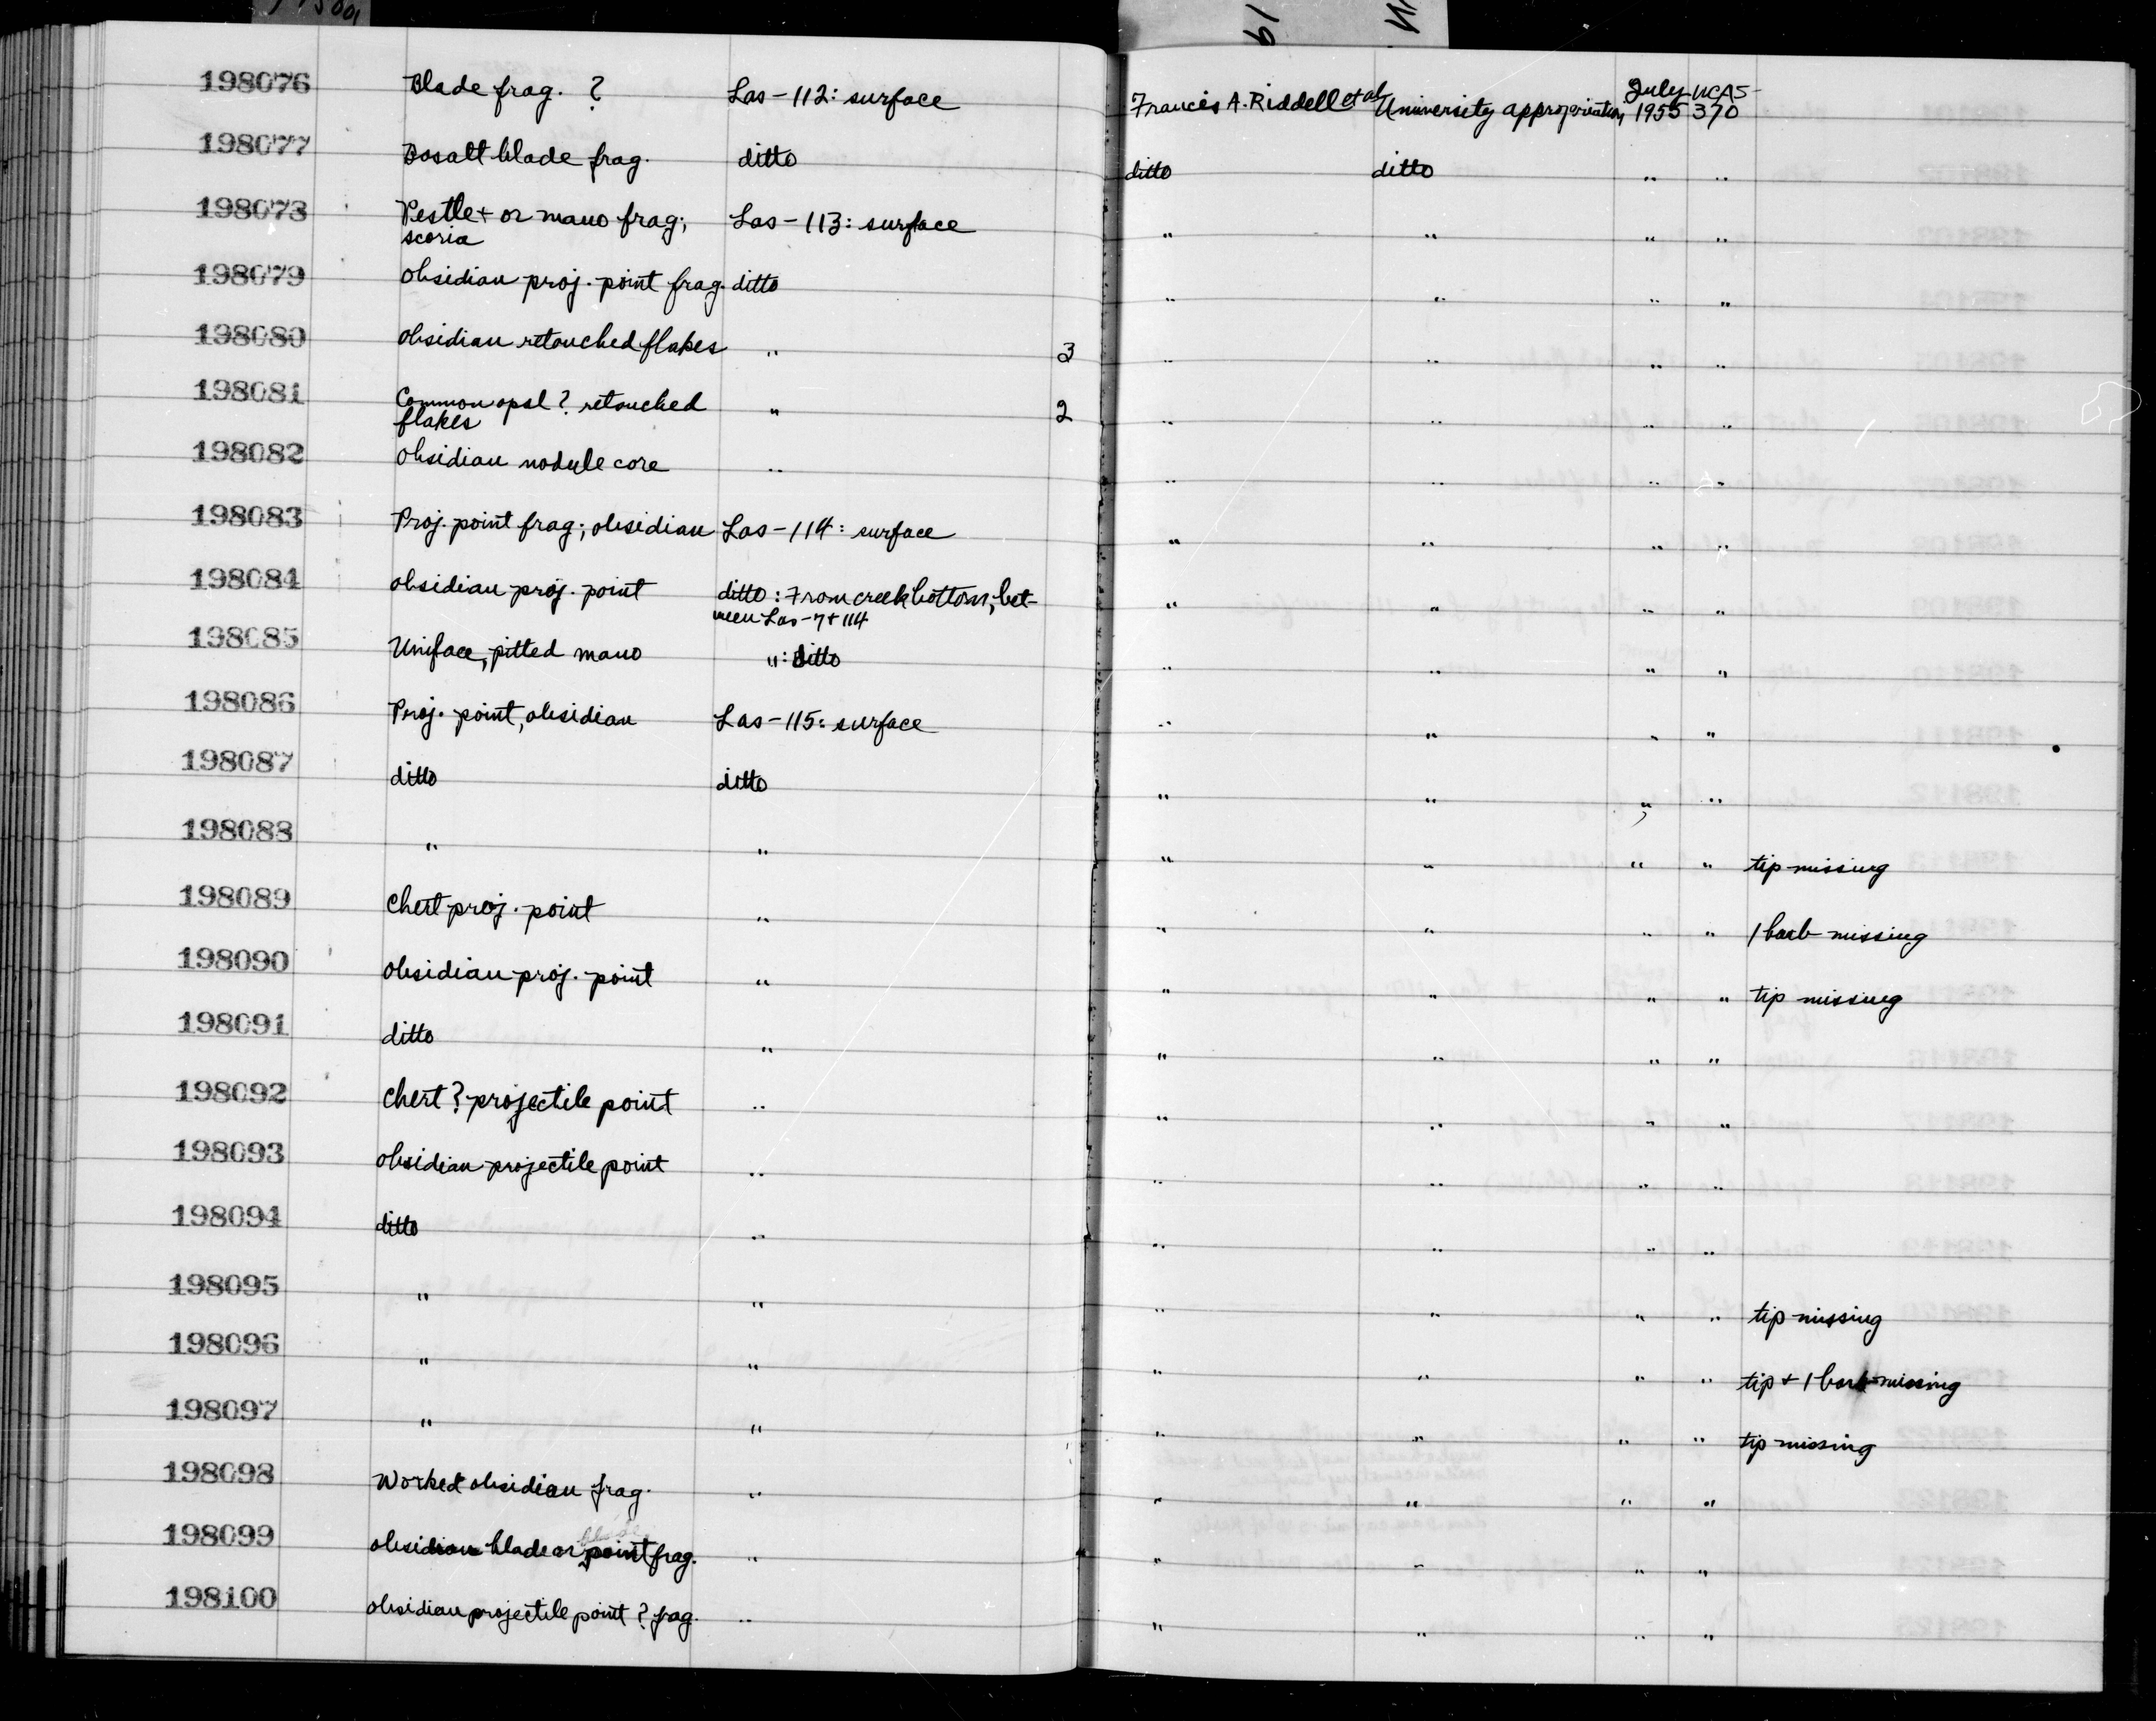 198076 Blade frag. ? Las-112: surface Francis A. Riddell et al University appropriation July 1955 UCAS-370
198077 Basalt blade frag. ditto ditto ditto " "
198078 Pestle + or mano frag; scoria Las-113: surface " " " "
198079 obsidian proj. point frag. ditto " " " "
198080 obsidian retouched flakes " 3 " " " "
198081 Common opal ? retouched flakes " 2 " " " "
198082 obsidian nodule core " " " " "
198083 Proj. point frag; obsidian Las-114: surface " " " "
198084 obsidian proj. point ditto: From creek bottom, between Las-7+114 " " " "
198085 Uniface, pitted mano ": ditto " " " "
198086 Proj. point, obsidian Las-115: surface " " " "
198087 ditto ditto " " " "
198088 " " " " " " tip missing
198089 Chert proj. point " " " " " 1 barb missing
198090 obsidian proj. point " " " " " tip missing
198091 ditto " " " " "
198092 Chert ? projectile point " " " " "
198093 obsidian projectile point " " " " "
198094 ditto " " " " "
198095 " " " " " " tip missing
198096 " " " " " " tip + 1 barb missing
198097 " " " " " " tip missing
198098 Worked obsidian frag. " " " " "
198099 obsidian blade or point frag. " " " " "
198100 obsidian projectile point ? frag. " " " " "